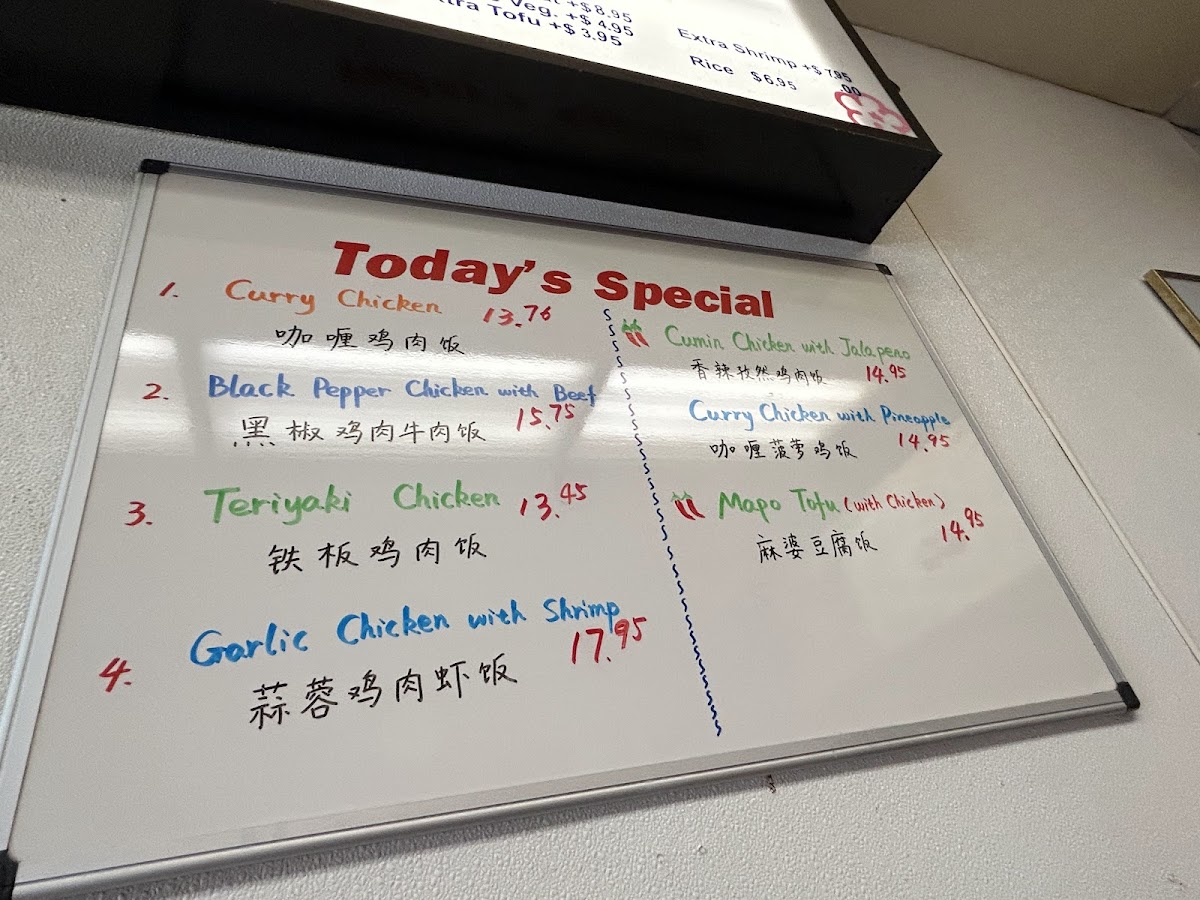 +$8.95
Veg. +$4.95
Tofu +$3.95
Extra Shrimp +$7.95
Rice $6.95
.00
Today's Special
1. Curry Chicken 13.76
咖喱鸡肉饭
2. Black Pepper Chicken with Beef 15.75
黑椒鸡肉牛肉饭
3. Teriyaki Chicken 13.45
铁板鸡肉饭
4. Garlic Chicken with Shrimp 17.95
蒜蓉鸡肉虾饭
Cumin Chicken with Jalapeno
香辣孜然鸡肉饭 14.95
Curry Chicken with Pineapple
咖喱菠萝鸡饭 14.95
Mapo Tofu (with Chicken)
麻婆豆腐饭 14.95